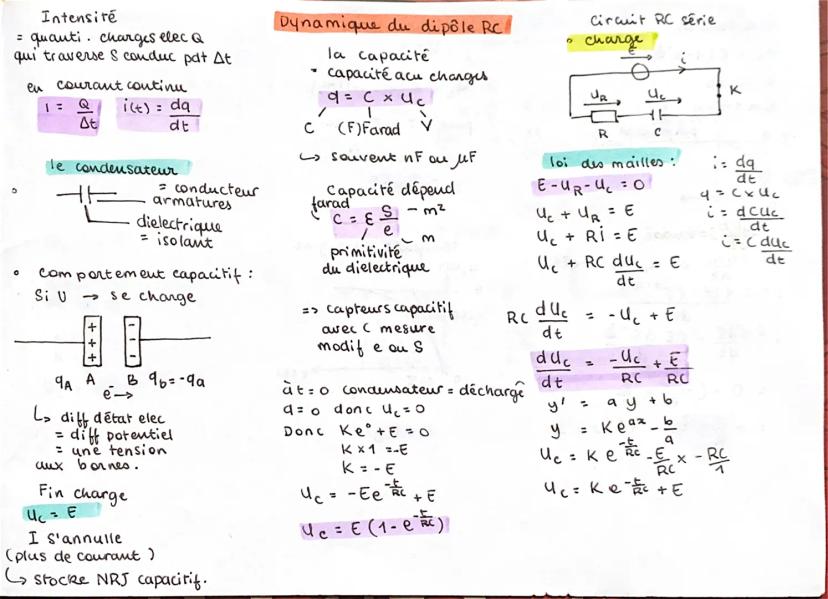 Intensité
= quanti. charges elec Q
qui traverse S conduc pdt Δt
en courant continu
I = Q/Δt i(t) = dq/dt
le condensateur
= conducteur
armatures
dielectrique
= isolant
comportement capacitif :
Si U → se charge
+ + + - - -
qA A B qb = -qa
e- →
↳ diff d'état elec
= diff potentiel
= une tension
aux bornes.
Fin charge
Uc = E
I s'annulle
(plus de courant)
↳ stocke NRJ capacitif.
Dynamique du dipôle RC
la capacité
• capacité acu charges
q = C × Uc
C (F)Farad V
↳ souvent nF ou μF
Capacité dépend
farad
C = ε S/e - m²
m
primitivité
du dielectrique
=> capteurs capacitif
avec C mesure
modif e ou S
à t = 0 condensateur = déchargé
q = 0 donc Uc = 0
Donc Ke⁰ + E = 0
K × 1 = -E
K = - E
Uc = -Ee^(-t/RC) + E
Uc = E (1 - e^(-t/RC))
Circuit RC série
• charge
E i
UR Uc K
R C
loi des mailles :
E - UR - Uc = 0
Uc + UR = E
Uc + Ri = E
Uc + RC dUc/dt = E
i = dq/dt
q = C × Uc
i = dCUc/dt
i = C dUc/dt
RC dUc/dt = -Uc + E
dUc/dt = -Uc/RC + E/RC
y' = a y + b
y = Ke^(ax) - b/a
Uc = K e^(-t/RC) - E/RC × - RC/1
Uc = K e^(-t/RC) + E